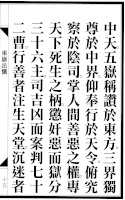 中天五嶽稱讃於東方三界獨
尊於中界仰奉行於天令俯究
察於陰司掌人間善惡之權專
天下死生之柄慈奸惡而獄分
三十六主司吉凶而案判七十
二曹行善者注生天堂沉迷者
東嶽法懺
十五